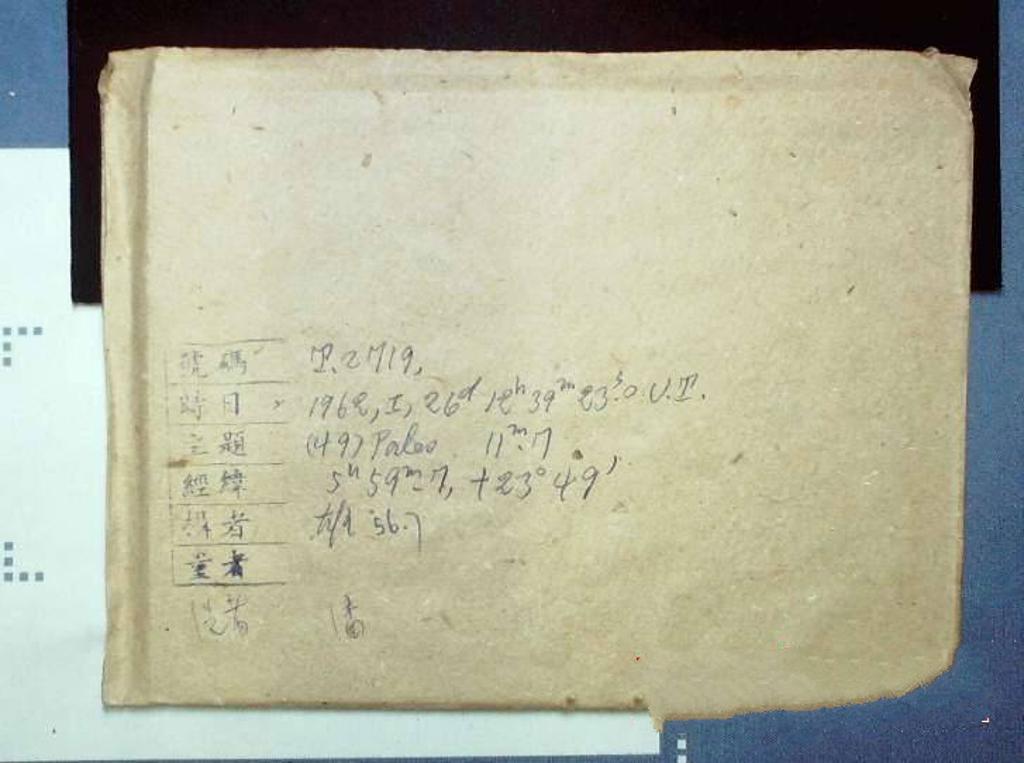 號碼 T.2719,
時日 1962, I, 26ᵈ 12ʰ 39ᵐ 23ˢ.0 U.T.
主題 (49) Pales 11ᵐ.7
經緯 5ʰ 59ᵐ.7, +23° 49′
者 56.7
量者
洗者 潘